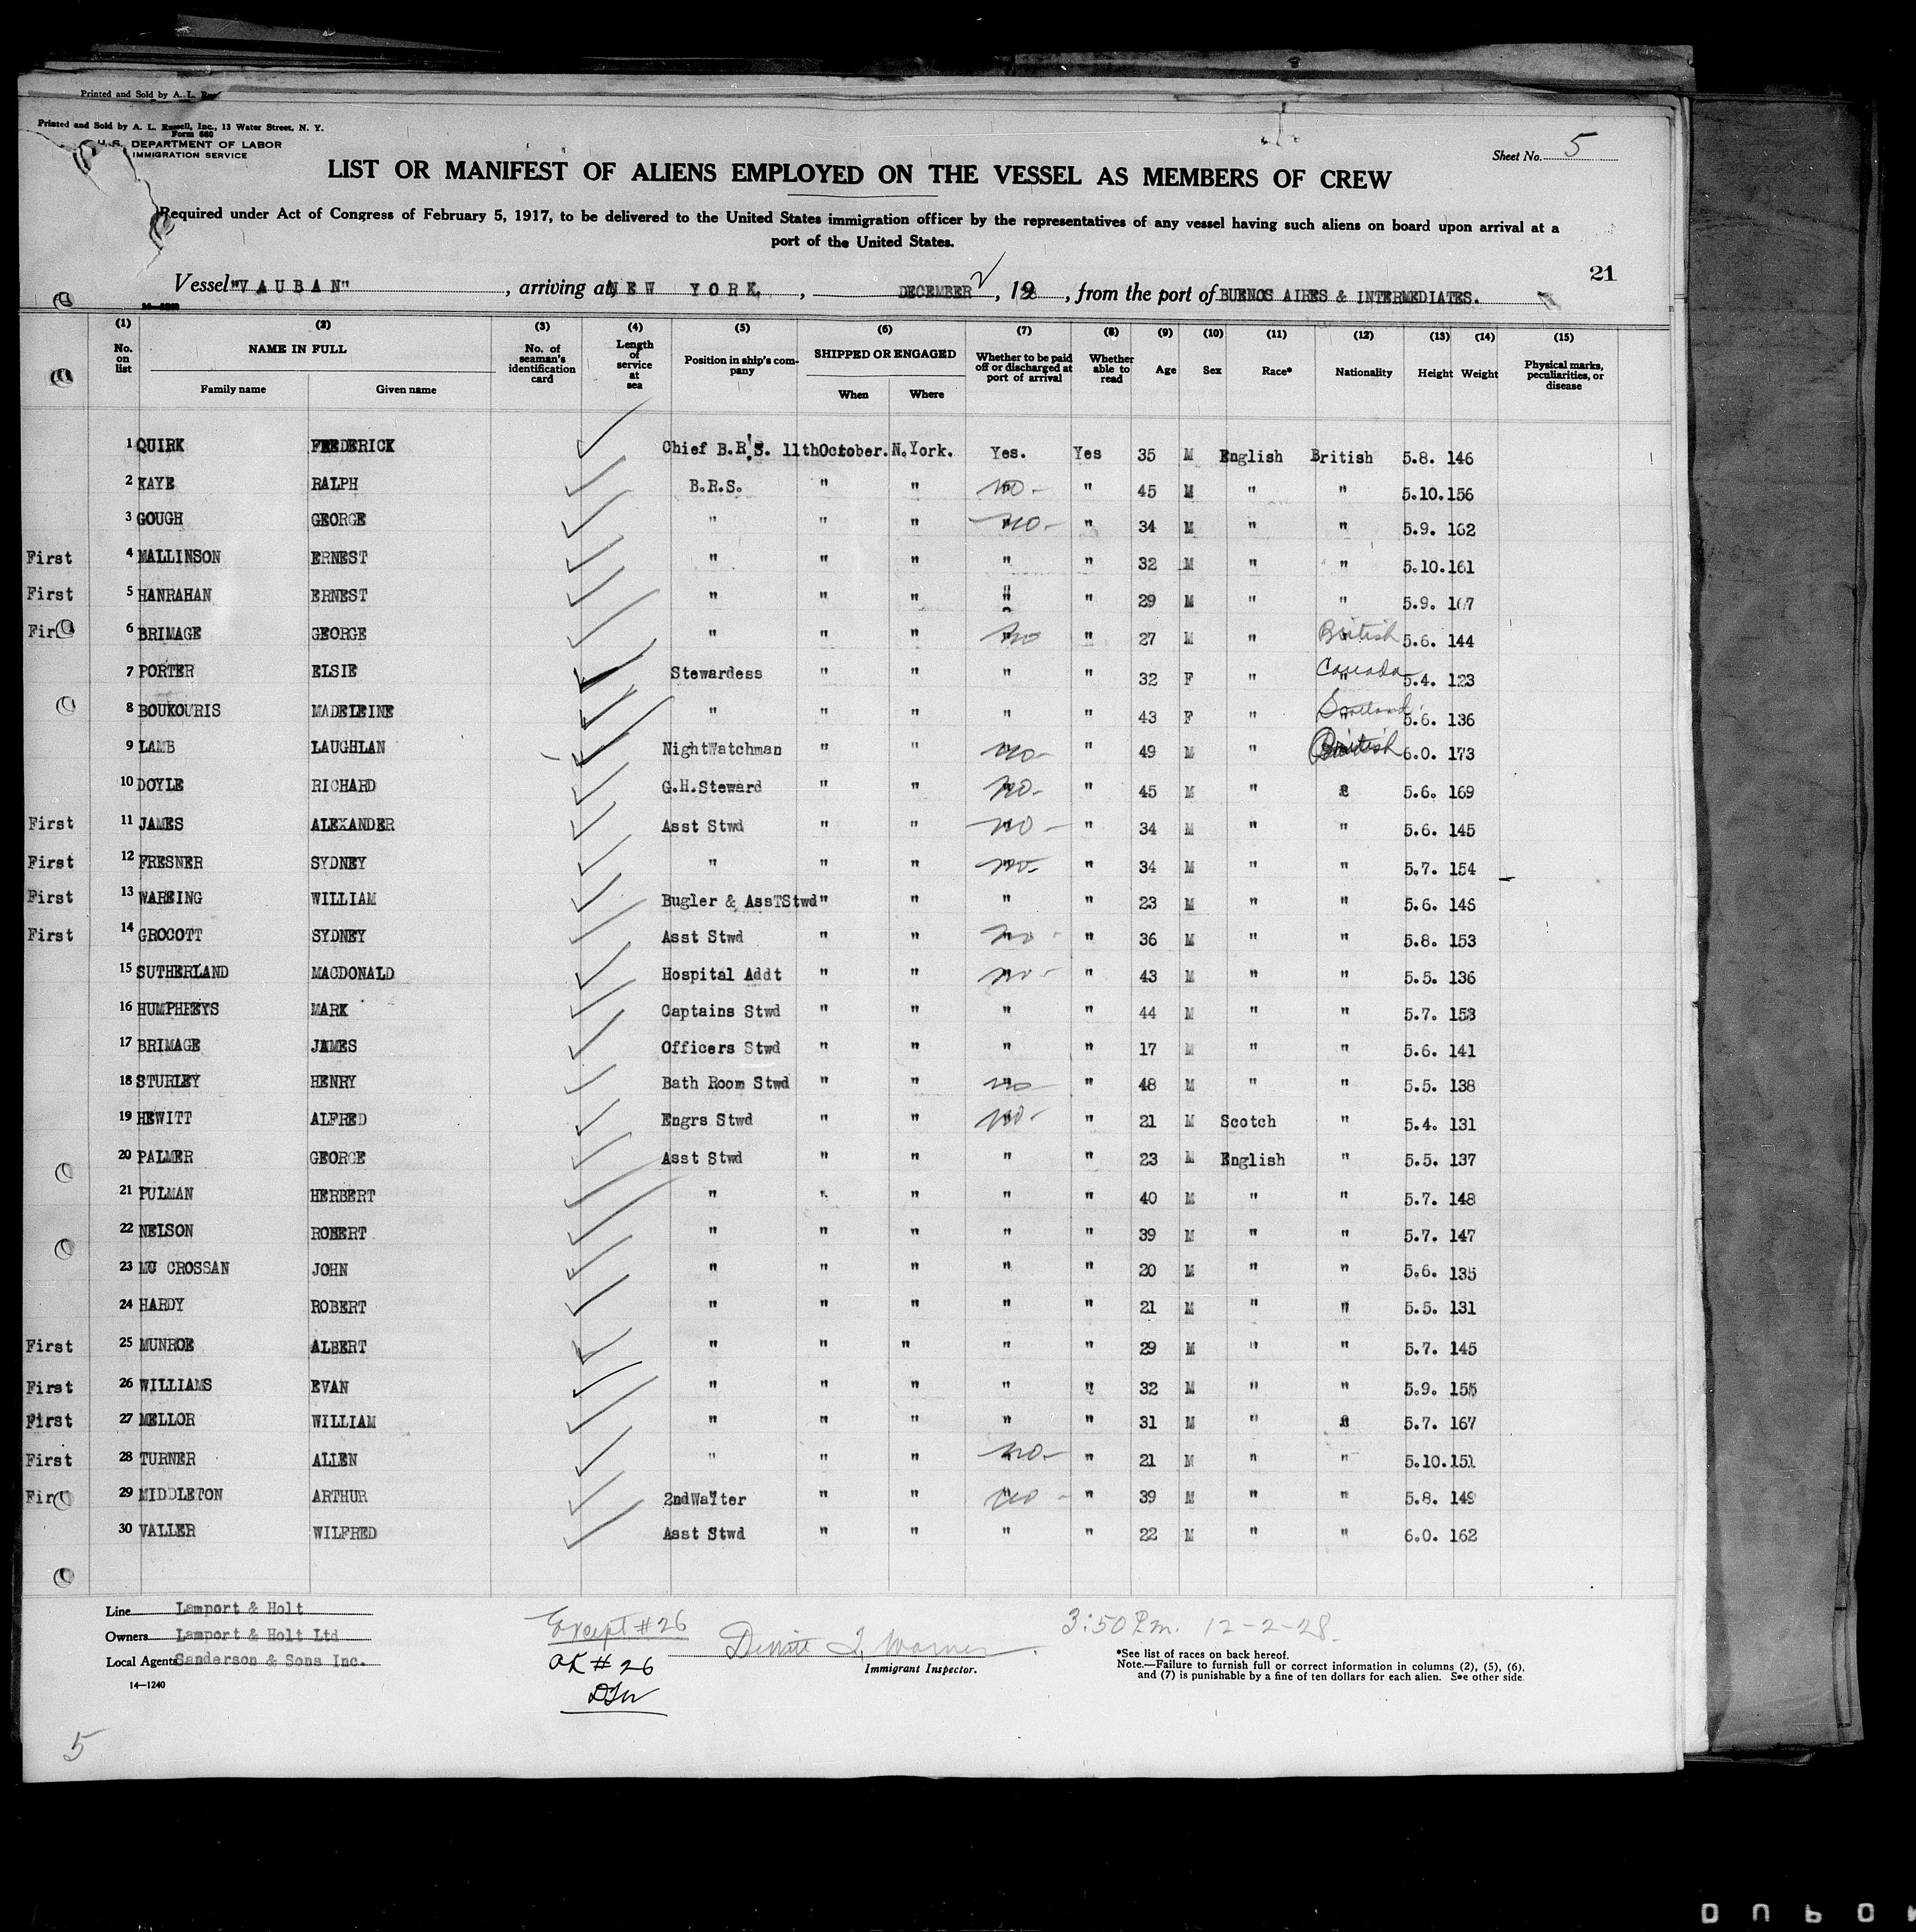 Printed and Sold by A. L.
Printed and Sold by A. L. Russell, Inc., 13 Water Street, N. Y.
Form 680
U. S. DEPARTMENT OF LABOR
IMMIGRATION SERVICE
Sheet No. 5
LIST OR MANIFEST OF ALIENS EMPLOYED ON THE VESSEL AS MEMBERS OF CREW
Required under Act of Congress of February 5, 1917, to be delivered to the United States immigration officer by the representatives of any vessel having such aliens on board upon arrival at a
port of the United States.
21
Vessel "VAUBAN", arriving at NEW YORK, DECEMBER 2, 19 , from the port of BUENOS AIRES & INTERMEDIATES.
(1) (2) (3) (4) (5) (6) (7) (8) (9) (10) (11) (12) (13) (14) (15)
No. on list NAME IN FULL Family name Given name No. of seaman's identification card Length of service at sea Position in ship's company SHIPPED OR ENGAGED When Where Whether to be paid off or discharged at port of arrival Whether able to read Age Sex Race* Nationality Height Weight Physical marks, peculiarities, or disease
1 QUIRK FREDERICK Chief B.R.S. 11thOctober. N.York. Yes. Yes 35 M English British 5.8. 146
2 KAYE RALPH B.R.S. " " no - " 45 M " " 5.10. 156
3 GOUGH GEORGE " " " no - " 34 M " " 5.9. 162
First 4 MALLINSON ERNEST " " " " " 32 M " " 5.10. 161
First 5 HANRAHAN ERNEST " " " " " 29 M " " 5.9. 167
Fir 6 BRIMAGE GEORGE " " " no " 27 M " British 5.6. 144
7 PORTER ELSIE Stewardess " " " " 32 F " Canada 5.4. 123
8 BOUKOURIS MADELEINE " " " " " 43 F " 5.6. 136
9 LAMB LAUGHLAN NightWatchman " " no - " 49 M " British 6.0. 173
10 DOYLE RICHARD G.H.Steward " " no - " 45 M " " 5.6. 169
First 11 JAMES ALEXANDER Asst Stwd " " no - " 34 M " " 5.6. 145
First 12 FRESNER SYDNEY " " " no - " 34 M " " 5.7. 154
First 13 WAREING WILLIAM Bugler & AssTStwd " " " " 23 M " " 5.6. 146
First 14 GROCOTT SYDNEY Asst Stwd " " no - " 36 M " " 5.8. 153
15 SUTHERLAND MACDONALD Hospital Addt " " no - " 43 M " " 5.5. 136
16 HUMPHREYS MARK Captains Stwd " " " " 44 M " " 5.7. 153
17 BRIMAGE JAMES Officers Stwd " " " " 17 M " " 5.6. 141
18 STURLEY HENRY Bath Room Stwd " " no " 48 M " " 5.5. 138
19 HEWITT ALFRED Engrs Stwd " " no - " 21 M Scotch " 5.4. 131
20 PALMER GEORGE Asst Stwd " " " " 23 M English " 5.5. 137
21 PULMAN HERBERT " " " " " 40 M " " 5.7. 148
22 NELSON ROBERT " " " " " 39 M " " 5.7. 147
23 MC CROSSAN JOHN " " " " " 20 M " " 5.6. 135
24 HARDY ROBERT " " " " " 21 M " " 5.5. 131
First 25 MUNROE ALBERT " " " " " 29 M " " 5.7. 145
First 26 WILLIAMS EVAN " " " " " 32 M " " 5.9. 155
First 27 MELLOR WILLIAM " " " " " 31 M " " 5.7. 167
First 28 TURNER ALLEN " " " no - " 21 M " " 5.10. 151
Fir 29 MIDDLETON ARTHUR 2ndWaiter " " no - " 39 M " " 5.8. 149
30 VALLER WILFRED Asst Stwd " " " " 22 M " " 6.0. 162
Line Lamport & Holt
Owners Lamport & Holt Ltd
Local Agents Sanderson & Sons Inc.
14—1240
Except # 26
OK # 26
Warner
Immigrant Inspector.
3:50 P.m. 12-2-28.
*See list of races on back hereof.
Note.—Failure to furnish full or correct information in columns (2), (5), (6),
and (7) is punishable by a fine of ten dollars for each alien. See other side.
5